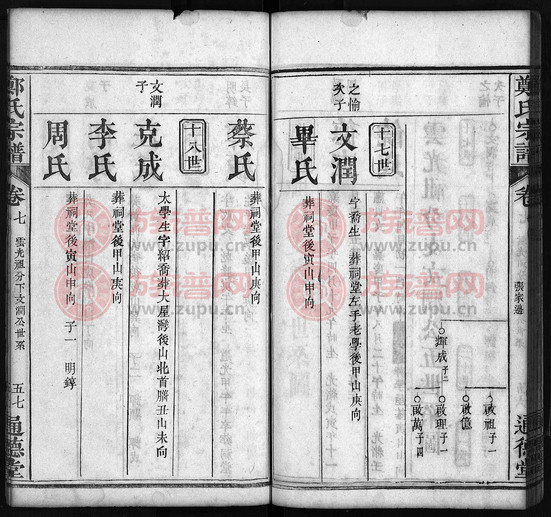 鄭氏宗譜
卷
張家邊
通德堂
啟祖子一
啟億
啟理子一
輝成子二
啟萬子四
十七世
之愉
次子
文潤
字喬生 葬祠堂左手老學後甲山庚向
畢氏
葬祠堂後寅山申向
蔡氏
葬祠堂後甲山庚向
十八世
文潤
子
克成
太學生字紹喬葬大屋灣後山北首腦丑山未向
李氏
葬祠堂後甲山庚向
周氏
葬祠堂後寅山申向 子一 明錞
鄭氏宗譜
卷七
雲光祖分下文潤公世系
五七
通德堂
族譜网
www.zupu.cn
族譜网
www.zupu.cn
族譜网
www.zupu.cn
族譜网
www.zupu.cn